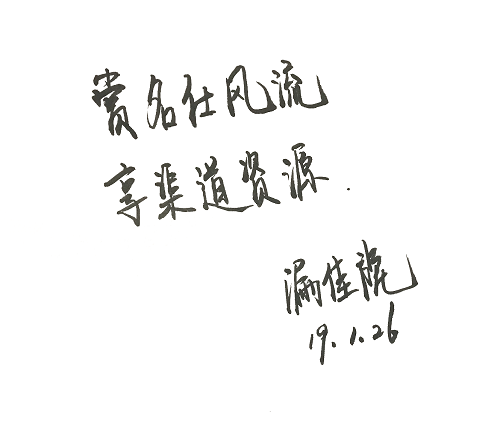 赏名仕风流
享渠道资源.
佳
19.1.26